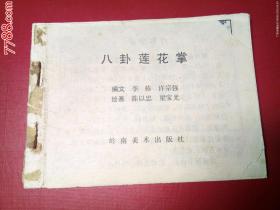 八卦莲花掌
编文 李栋 许宗强
绘画 陈以忠 梁宝光
岭南美术出版社
7788.com